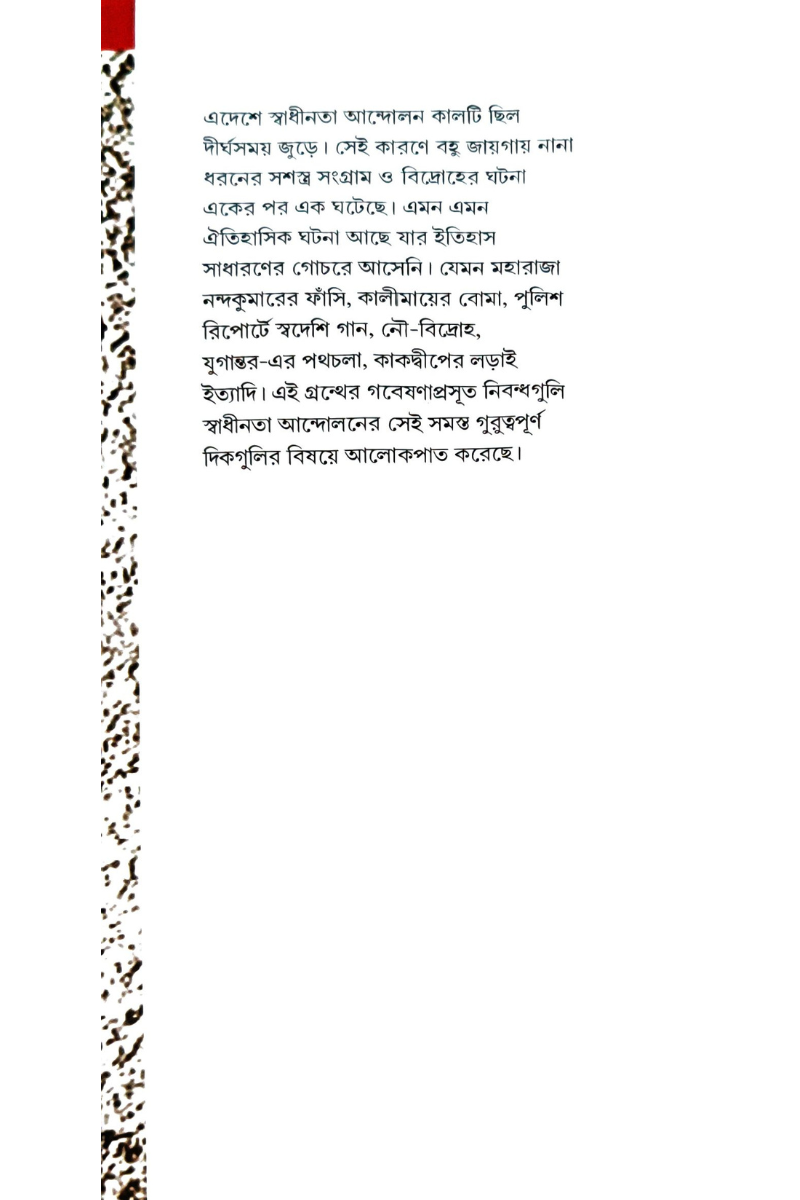 এদেশে স্বাধীনতা আন্দোলন কালটি ছিল
দীর্ঘসময় জুড়ে। সেই কারণে বহু জায়গায় নানা
ধরনের সশস্ত্র সংগ্রাম ও বিদ্রোহের ঘটনা
একের পর এক ঘটেছে। এমন এমন
ঐতিহাসিক ঘটনা আছে যার ইতিহাস
সাধারণের গোচরে আসেনি। যেমন মহারাজা
নন্দকুমারের ফাঁসি, কালীমায়ের বোমা, পুলিশ
রিপোর্টে স্বদেশি গান, নৌ-বিদ্রোহ,
যুগান্তর-এর পথচলা, কাকদ্বীপের লড়াই
ইত্যাদি। এই গ্রন্থের গবেষণাপ্রসূত নিবন্ধগুলি
স্বাধীনতা আন্দোলনের সেই সমস্ত গুরুত্বপূর্ণ
দিকগুলির বিষয়ে আলোকপাত করেছে।